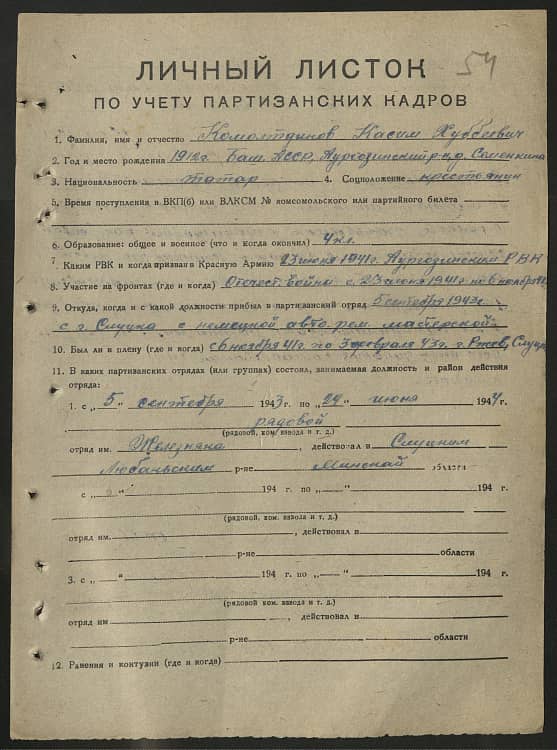 54
ЛИЧНЫЙ ЛИСТОК
ПО УЧЕТУ ПАРТИЗАНСКИХ КАДРОВ
1. Фамилия, имя и отчество Комолтдинов Касим Хуббеевич
2. Год и место рождения 1912г. Баш. АССР, Аургозинский р-н д. Семенкина
3. Национальность татар 4. Соцположение крестьянин
5. Время поступления в ВКП(б) или ВЛКСМ № комсомольского или партийного билета
6. Образование: общее и военное (что и когда окончил) 4 кл.
7. Каким РВК и когда призван в Красную Армию 23 июня 1941г. Аургозинским РВК
8. Участие на фронтах (где и когда) Отечест. войны с 23 июня 1941г. по 6 ноября
9. Откуда, когда и с какой должности прибыл в партизанский отряд 5 сентября 1943г.
с г. Слуцка с немецкой авто. рем. мастерской
10. Был ли в плену (где и когда) с 6 ноября 41г. по 3 февраля 43г. г. Ржев, Слуцк
11. В каких партизанских отрядах (или группах) состоял, занимаемая должность и район действия
отряда:
1. с „5“ сентября 1943 г. по „29“ июня 1944 г.
рядовой
(рядовой, ком. взвода и т. д.)
отряд им. Железняка, действовал в Слуцким
Любаньским р-не Минской области
с „ “ 194 г. по „ “ 194 г.
(рядовой, ком. взвода и т. д.)
отряд им., действовал в
р-не области
3. с „ “ 194 г. по „ “ 194 г.
(рядовой ком. взвода и т. д.)
отряд им , действовал в
р-не области
12. Ранения и контузии (где и когда)